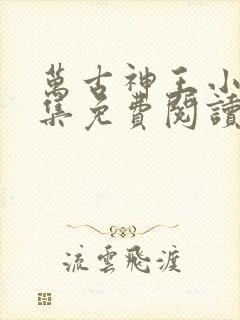 萬古神王小
集免費閱讀
流雲飛渡